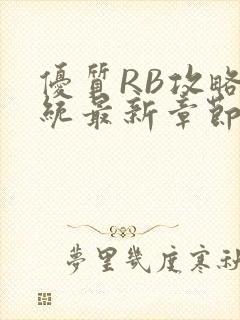 優質RB攻略
統最新章節
夢里幾度寒秋